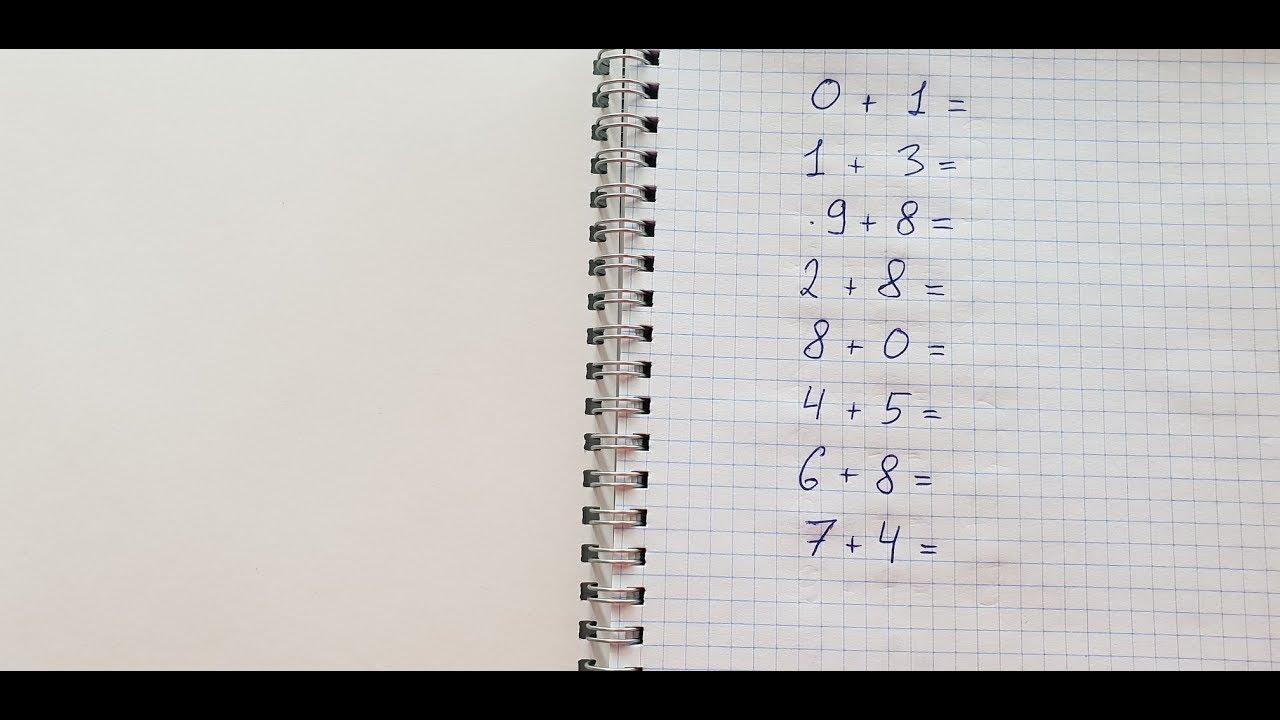 0 + 1 =
1 + 3 =
. 9 + 8 =
2 + 8 =
8 + 0 =
4 + 5 =
6 + 8 =
7 + 4 =